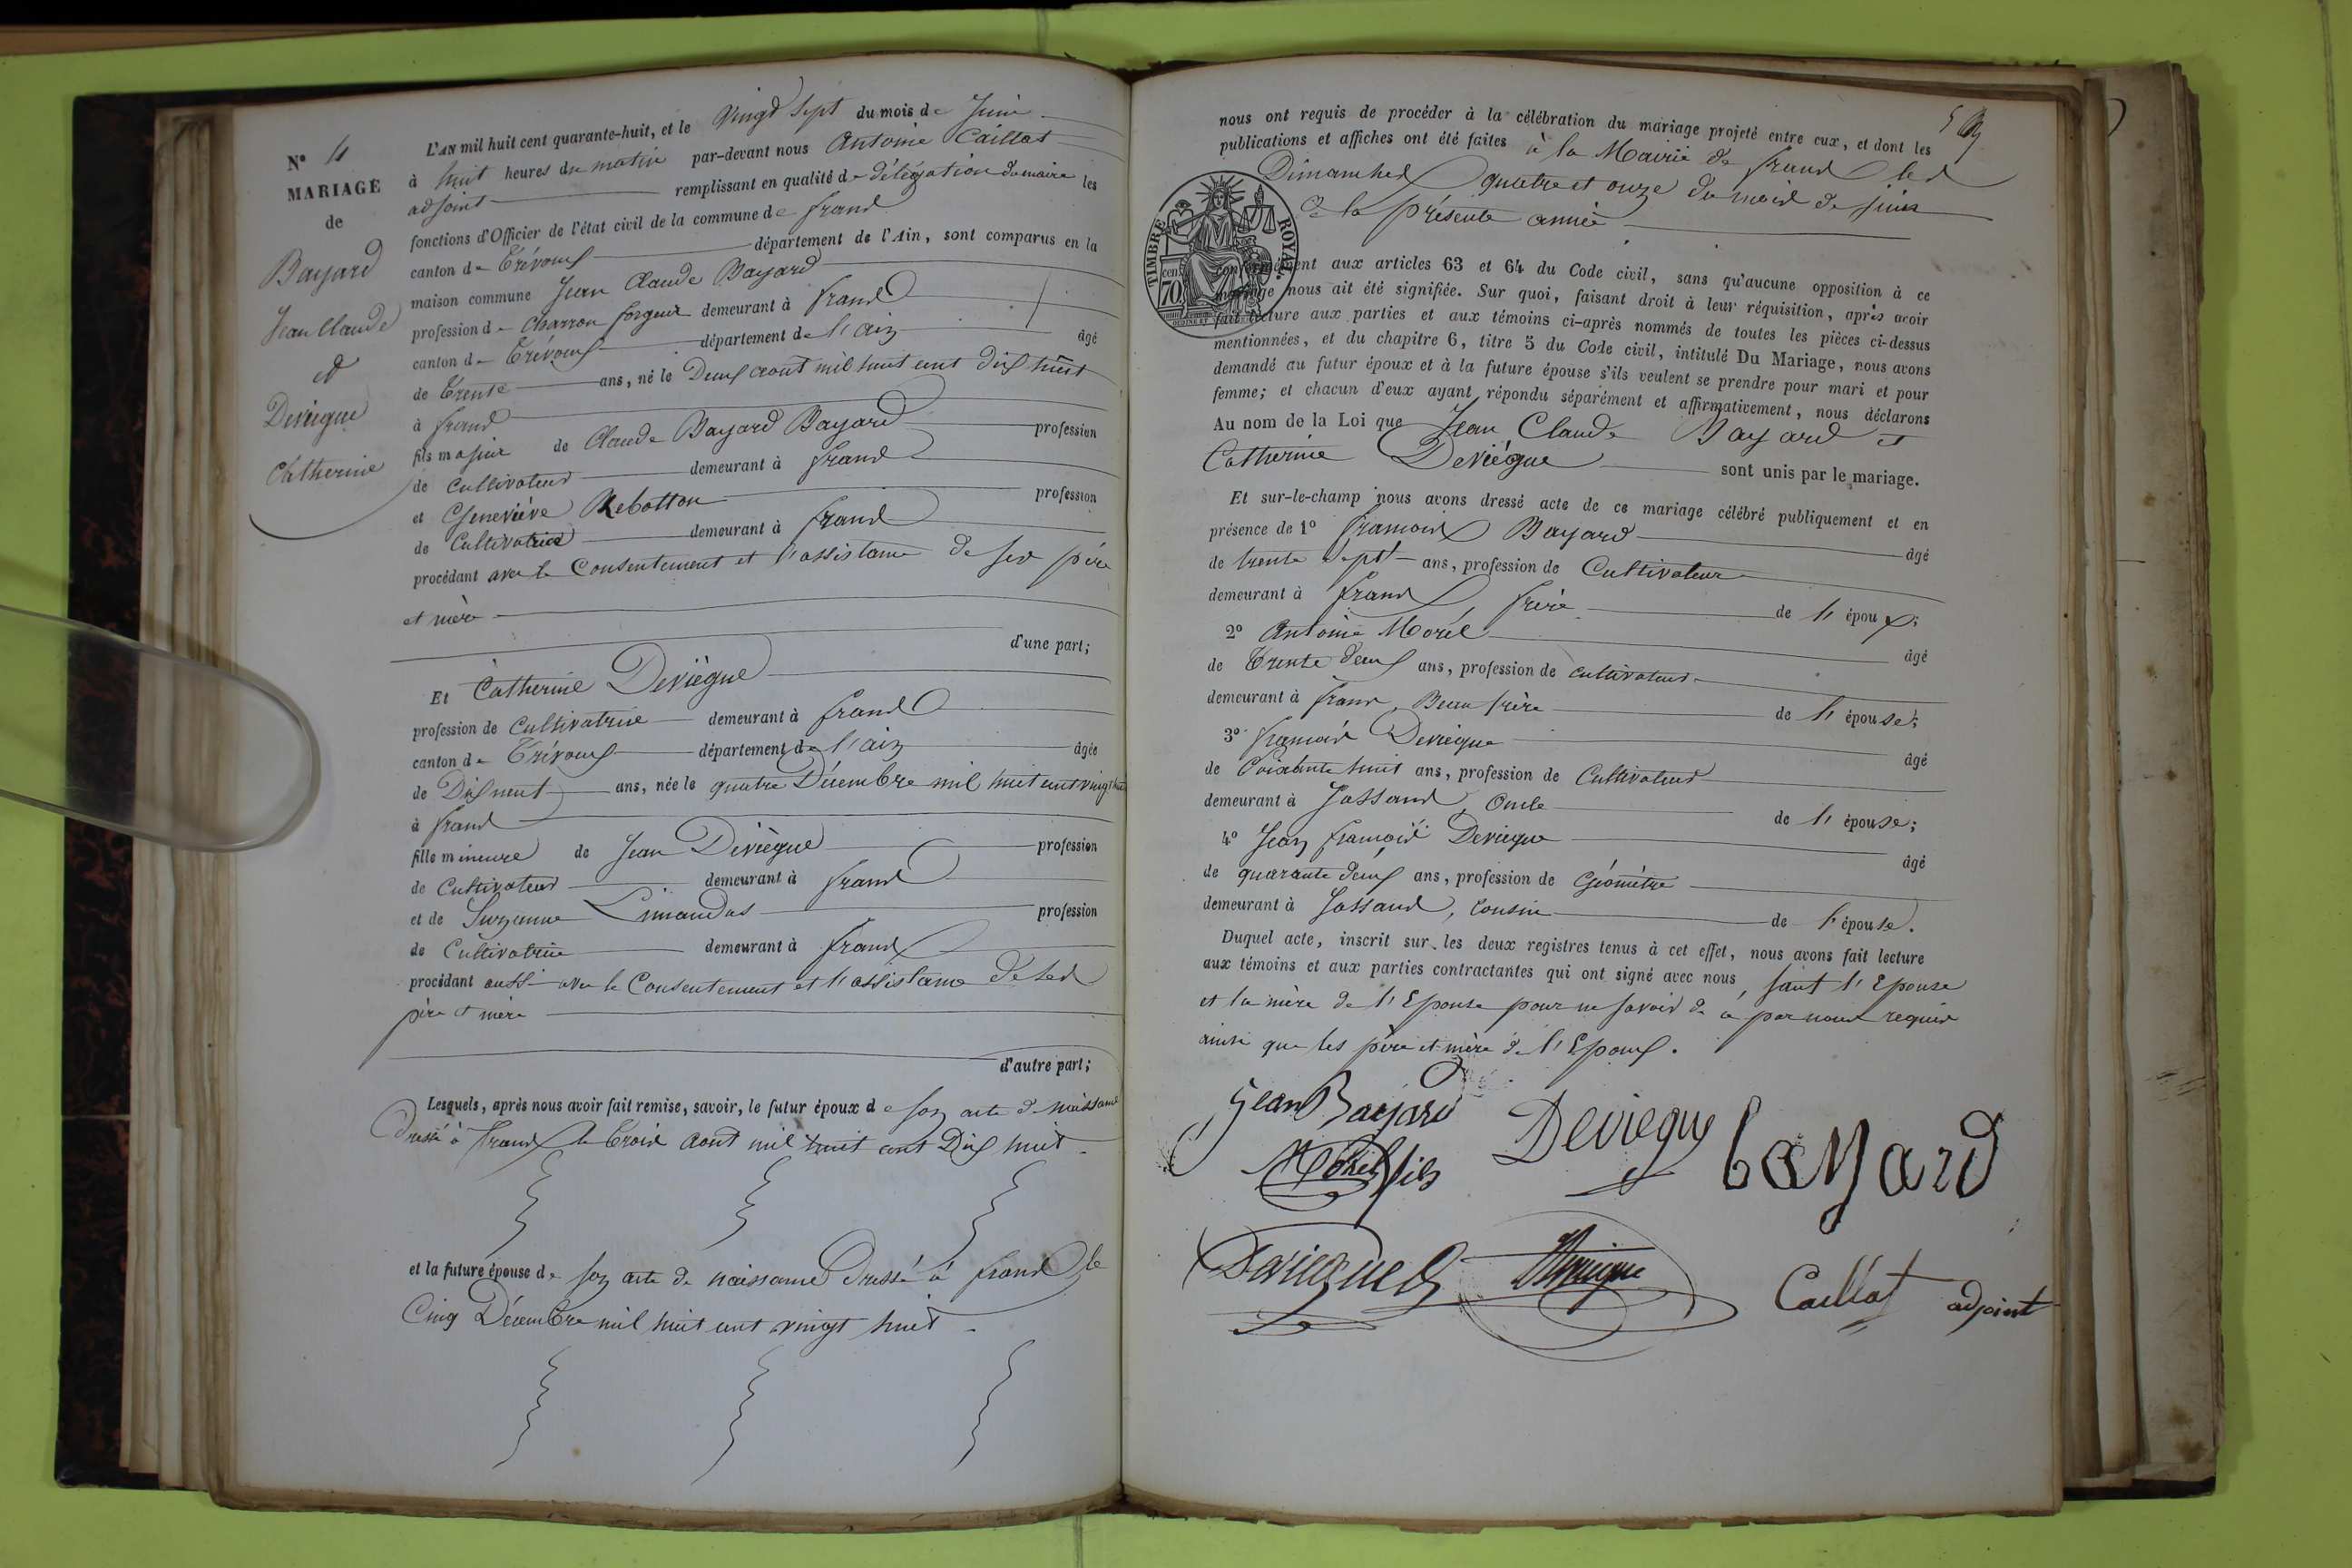 N° 4
MARIAGE
de
Bayard
Jean Claude
et
Deviegue
Catherine
L'AN mil huit cent quarante-huit, et le vingt sept du mois de Juin
à huit heures du matin par-devant nous Antoine Caillat
adjoint remplissant en qualité de délégation du maire les
fonctions d'Officier de l'état civil de la commune de frans
canton de Trévoux département de l'Ain, sont comparus en la
maison commune Jean Claude Bayard
profession de charron forgeur demeurant à frans
canton de Trévoux département de l'ain âgé
de Trente ans, né le Deux aout mil huit cent dix huit
à frans
fils majeur de Claude Bayard Bayard profession
de Cultivateur demeurant à frans
et Geneviève Rebotton profession
de Cultivatrice demeurant à frans
procédant avec le Consentement et l'assistance de ses père
et mère
d'une part;
Et Catherine Deviègue
profession de Cultivatrice demeurant à frans
canton de Trévoux département de l'ain âgée
de Dix neuf ans, née le quatre Décembre mil huit cent vingt huit
à frans
fille mineure de Jean Deviègue profession
de Cultivateur demeurant à frans
et de Suzanne Limandas profession
de Cultivatrice demeurant à frans
procédant aussi avec le Consentement et l'assistance de ses
père et mère
d'autre part;
Lesquels, après nous avoir fait remise, savoir, le futur époux de son acte de naissance
dressé à frans le trois aout mil huit cent Dix huit
et la future épouse de son acte de naissance dressé à frans le
Cinq Décembre mil huit cent vingt huit
nous ont requis de procéder à la célébration du mariage projeté entre eux, et dont les
publications et affiches ont été faites à la Mairie de frans les
Dimanches quatre et onze du mois de juin
de la présente année
TIMBRE ROYAL
cent 70
conformément aux articles 63 et 64 du Code civil, sans qu'aucune opposition à ce
mariage nous ait été signifiée. Sur quoi, faisant droit à leur réquisition, après avoir
fait lecture aux parties et aux témoins ci-après nommés de toutes les pièces ci-dessus
mentionnées, et du chapitre 6, titre 5 du Code civil, intitulé Du Mariage, nous avons
demandé au futur époux et à la future épouse s'ils veulent se prendre pour mari et pour
femme; et chacun d'eux ayant répondu séparément et affirmativement, nous déclarons
Au nom de la Loi que Jean Claude Bayard et
Catherine Deviégue sont unis par le mariage.
Et sur-le-champ nous avons dressé acte de ce mariage célébré publiquement et en
présence de 1° françois Bayard âgé
de trente sept ans, profession de Cultivateur
demeurant à frans, frère de l'époux;
2° Antoine Morel âgé
de Trente deux ans, profession de cultivateur
demeurant à frans, Beau frère de l'épouse;
3° françois Deviegue âgé
de Soixante huit ans, profession de Cultivateur
demeurant à Jassans, Oncle de l'épouse;
4° Jean françois Deviegue âgé
de quarante deux ans, profession de Géomètre
demeurant à Jassans, Cousin de l'épouse.
Duquel acte, inscrit sur les deux registres tenus à cet effet, nous avons fait lecture
aux témoins et aux parties contractantes qui ont signé avec nous, sauf l'Epouse
et la mère de l'Epouse pour ne savoir de ce par nous requis
ainsi que les père et mère de l'Epoux.
Jean Bayard
Deviegue
bayard
Morel fils
Deviegue
Caillat adjoint